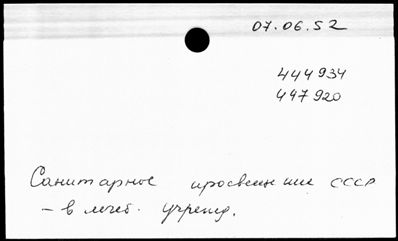 07.06.52
444934
447920
Санитарное просвещение СССР
– в лечеб. учрежд.